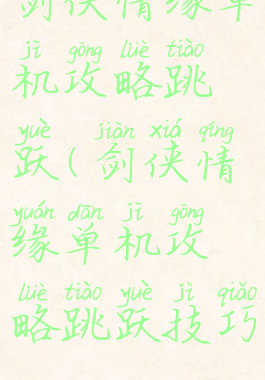 剑侠情缘单
jī gōng lüè tiào
机攻略跳
yuè jiàn xiá qíng
跃(剑侠情
yuán dān jī gōng
缘单机攻
lüè tiào yuè jì qiǎo
略跳跃技巧